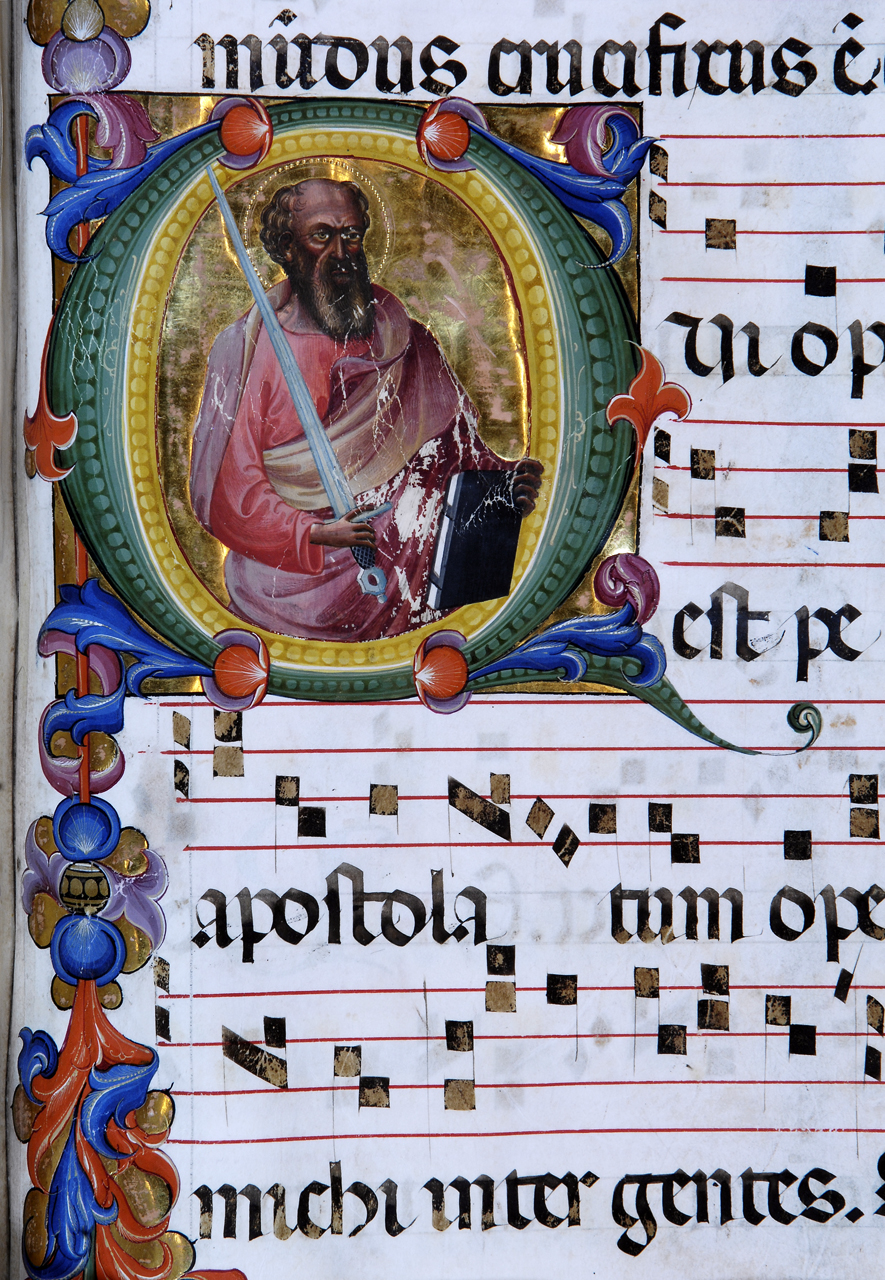 mūdus crucifixus ē
Qui op
est pe
apostola tum ope
michi inter gentes.